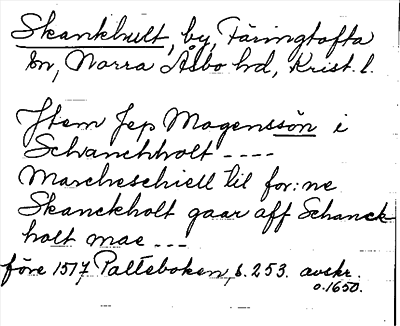 Skankhult, by, Färingtofta
sn, Norra Åsbo hd, Krist. l.
Jtem Jep Mogenssøn i
Schvanchholt ----
Marcheschiell til for:ne
Skanckholt gaar aff Schanck-
holt mae ---
före 1517 Palteboken, s. 253. avskr.
o. 1650.